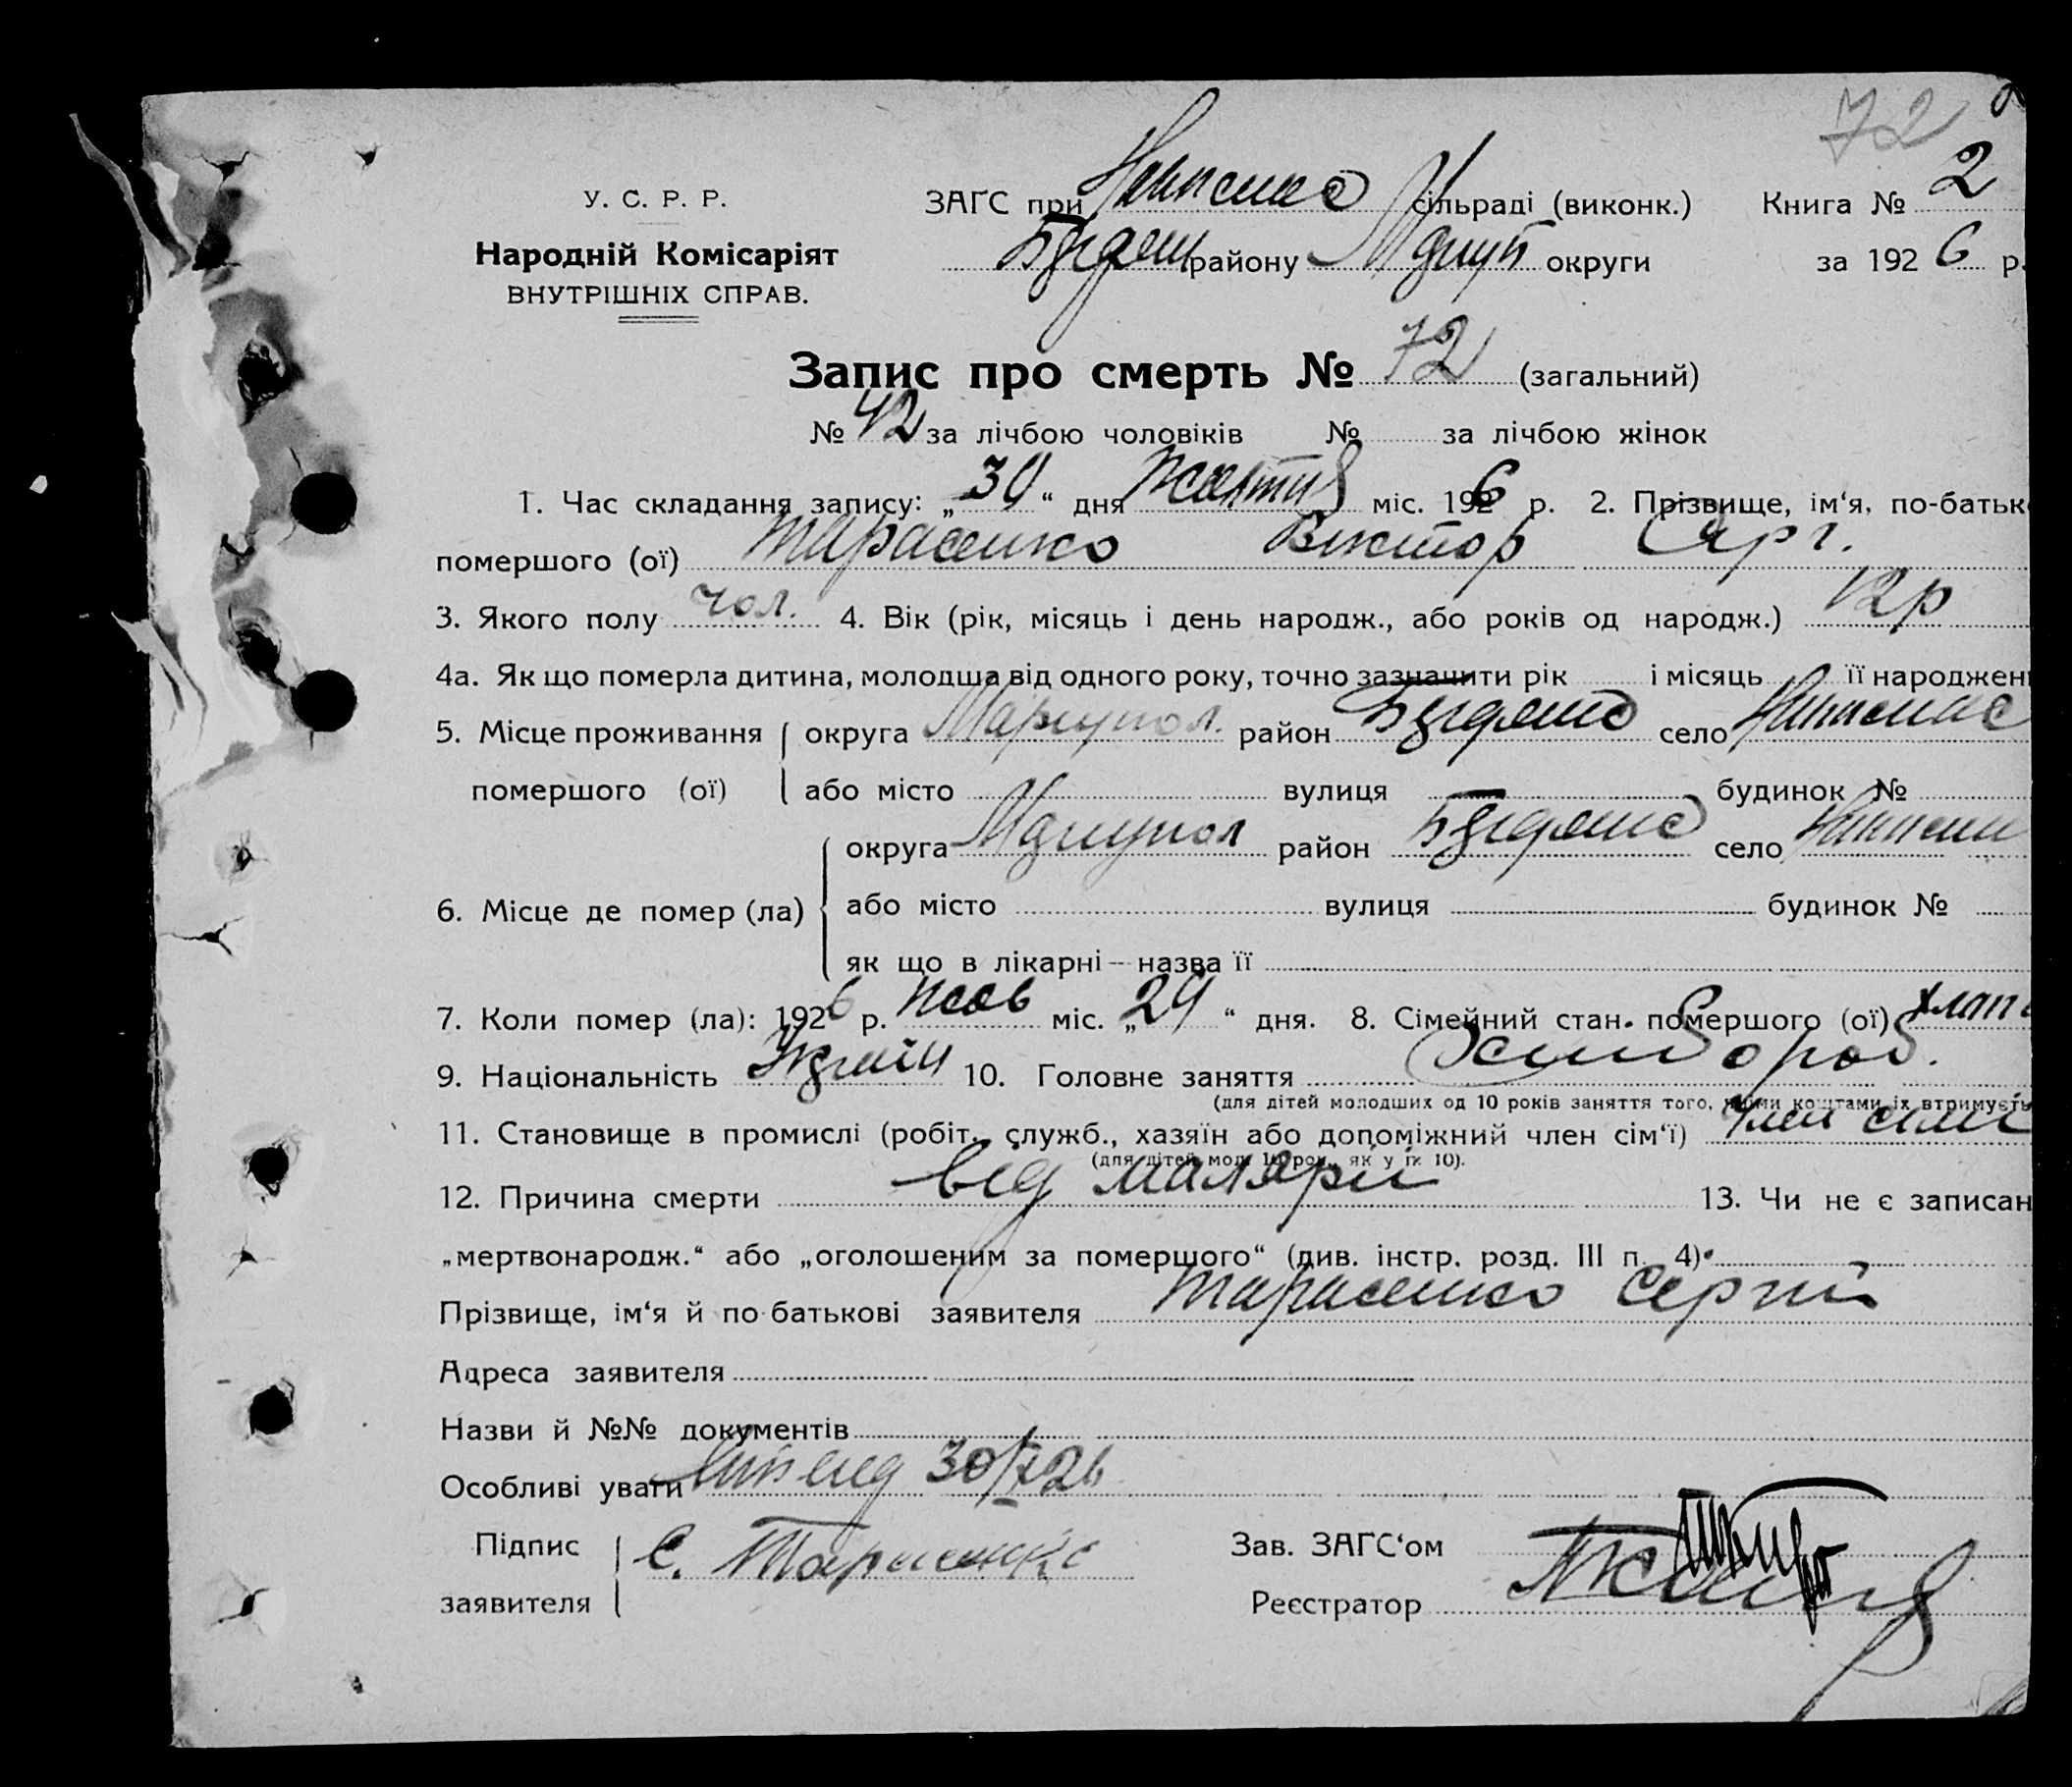 72
У. С. Р. Р.
Народній Комісаріят
ВНУТРІШНІХ СПРАВ.
ЗАГС при сільраді (виконк.) Книга № 2
району округи за 1926 р.
Запис про смерть № 72 (загальний)
№ 42 за лічбою чоловіків № за лічбою жінок
1. Час складання запису: „30“ дня міс. 1926 р. 2. Прізвище, ім‘я, по-батьк
помершого (ої) Тарасенко Віктор Серг.
3. Якого полу чол. 4. Вік (рік, місяць і день народж., або років од народж.) 12р
4а. Як що померла дитина, молодша від одного року, точно зазначити рік і місяць її народжен
5. Місце проживання округа Маріупол. район село
помершого (ої) або місто вулиця будинок №
округа Маріупол район село
6. Місце де помер (ла) або місто вулиця будинок №
як що в лікарні — назва її
7. Коли помер (ла): 1926 р. Жов міс. „29“ дня. 8. Сімейний стан. помершого (ої)
9. Національність 10. Головне заняття
(для дітей молодших од 10 років заняття того, чиїми коштами їх втримуєть
11. Становище в промислі (робіт., служб., хазяїн або допоміжний член сім‘ї) член сімї
(для дітей мол. 10 рок., як у п. 10).
12. Причина смерти від малярії 13. Чи не є записан
„мертвонародж.“ або „оголошеним за помершого“ (див. інстр. розд. III п. 4).
Прізвище, ім‘я й по-батькові заявителя Тарасенко Сергій
Адреса заявителя
Назви й №№ документів
Особливі уваги 30/X 26
Підпис С. Тарасенко Зав. ЗАГС‘ом
заявителя Реєстратор